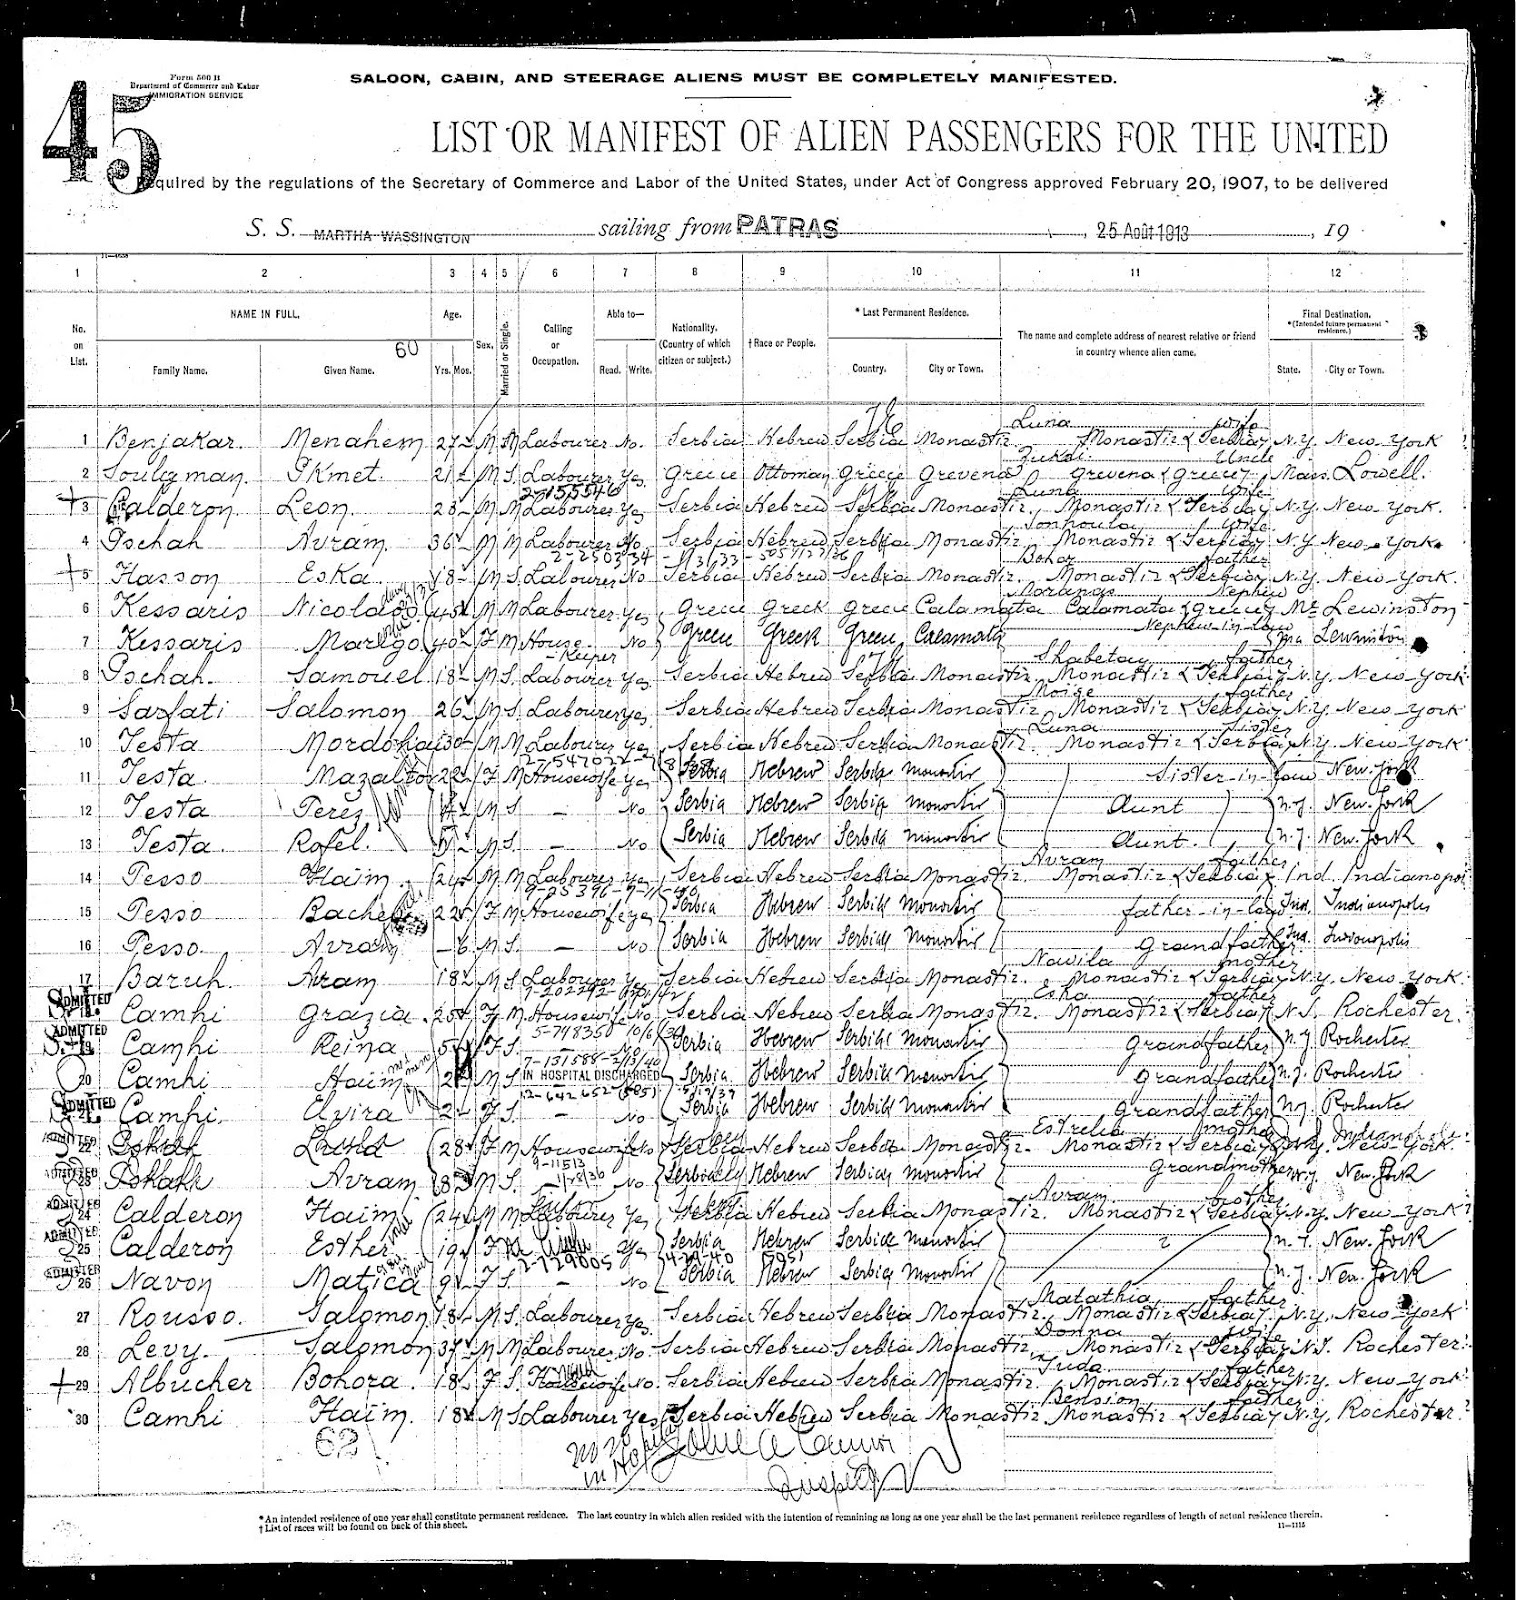 45
Form 500 B
Department of Commerce and Labor
IMMIGRATION SERVICE
SALOON, CABIN, AND STEERAGE ALIENS MUST BE COMPLETELY MANIFESTED.
LIST OR MANIFEST OF ALIEN PASSENGERS FOR THE UNITED
equired by the regulations of the Secretary of Commerce and Labor of the United States, under Act of Congress approved February 20, 1907, to be delivered
S. S. MARTHA WASSINGTON sailing from PATRAS, 25 Août 1913, 19
1 2 3 4 5 6 7 8 9 10 11 12
No. on List. NAME IN FULL. Family Name. Given Name. 60 Age. Yrs. Mos. Sex. Married or Single. Calling or Occupation. Able to— Read. Write. Nationality. (Country of which citizen or subject.) † Race or People. * Last Permanent Residence. Country. City or Town. The name and complete address of nearest relative or friend in country whence alien came. Final Destination. * (Intended future permanent residence.) State. City or Town.
Luna wife
1 Benjakar. Menahem 27 M M Labourer No. Serbia Hebrew Serbia Monastir Monastir Serbia N.Y. New-York
Uncle
2 Soulyman. Ikmet. 21 M S. Labourer Yes Greece Ottoman Greece Grevena Grevena Greece Mass. Lowell.
2-155546 Luna wife
3 Calderon Leon. 28 M M Labourer Yes Serbia Hebrew Serbia Monastir. Monastir Serbia N.Y. New-York.
wife
4 Pschah Avram. 36 M M Labourer No Serbia Hebrew Serbia Monastir Monastir Serbia N.Y. New-York
Bohor father
5 Hasson Eska 18 M S. Labourer No Serbia Hebrew Serbia Monastir. Monastir Serbia N.Y. New-York.
Nephew
6 Kessaris Nicolaos 45 M M Labourer. Yes Greece Greek Greece Calamata Calamata Greece Me Lewinston
Nephew-in-law
7 Kessaris Marigo 40 F M House-Keeper No Greece Greek Greece Calamata Me Lewinston
Shabetay father
8 Pschah. Samouel 18 M S. Labourer Yes Serbia Hebrew Serbia Monastir Monastir Serbia N.Y. New-York
Moise father
9 Sarfati Salomon 26 M S. Labourer Yes Serbia Hebrew Serbia Monastir Monastir Serbia N.Y. New-York
Luna Sister
10 Testa Mordohai 30 M M Labourer Yes Serbia Hebrew Serbia Monastir. Monastir Serbia N.Y. New-York
11 Testa. Mazaltov 22 F M Housewife Yes Serbia Hebrew Serbia Monastir Sister-in-law New-York
12 Testa Perez M S — No Serbia Hebrew Serbia Monastir Aunt N.Y. New-York
13 Testa. Rafel. M S. — No Serbia Hebrew Serbia Monastir Aunt. N.Y. New-York
Avram father
14 Pesso Haim. 24 M M Labourer Yes Serbia Hebrew Serbia Monastir. Monastir Serbia Ind. Indianopoli
15 Pesso 22 F M Housewife Yes Serbia Hebrew Serbia Monastir father-in-law Ind. Indianopolis
16 Pesso. Avram — 6 M S. — No Serbia Hebrew Serbia Monastir Grandfather Ind. Indianopolis
mother
17 Baruh. Avram 18 M S Labourer Yes Serbia Hebrew Serbia Monastir. Monastir Serbia N.Y. New-York.
Eska father
ADMITTED Camhi Grazia. F M Housewife No Serbia Hebrew Serbia Monastir. Monastir Serbia N.Y. Rochester.
5-748350
ADMITTED 19 Camhi Reina 5 F S. — Serbia Hebrew Serbia Monastir Grandfather N.Y. Rochester
7-131588
20 Camhi Haim 2 M S IN HOSPITAL DISCHARGED Serbia Hebrew Serbia Monastir Grandfather N.Y. Rochester
ADMITTED Camhi. Elvira 2 F S. — No Serbia Hebrew Serbia Monastir Grandfather N.Y. Rochester
mother
ADMITTED 22 28 F M Housewife No Serbia Hebrew Serbia Monastir. Monastir Serbia N.Y. New-York.
9-11513
ADMITTED 23 Avram M S. — No Hebrew Serbia Monastir Grandmother N.Y. New-York
Avram brother
ADMITTED 24 Calderon Haim 24 M M Labourer Yes Serbia Hebrew Serbia Monastir. Monastir Serbia N.Y. New-York
ADMITTED 25 Calderon Esther 19 F M Yes Serbia Hebrew Serbia Monastir N.Y. New-York
2-729005 4-29-40
ADMITTED 26 Navon Matica 9 F S. — No Serbia Hebrew Serbia Monastir N.Y. New-York
Matathia father
27 Rousso. Salomon 18 M S. Labourer Yes Serbia Hebrew Serbia Monastir Monastir Serbia N.Y. New-York
Donna wife
28 Levy. Salomon 37 M M Labourer No. Serbia Hebrew Serbia Monastir Monastir Serbia N.Y. Rochester
Juda father
29 Albucher Bohora. 18 F S. Housewife No. Serbia Hebrew Serbia Monastir. Monastir Serbia N.Y. New-York
Bension father
30 Camhi Haim. 18 M S Labourer Yes Serbia Hebrew Serbia Monastir Monastir Serbia N.Y. Rochester
62
No 20 in Hospital
* An intended residence of one year shall constitute permanent residence. The last country in which alien resided with the intention of remaining as long as one year shall be the last permanent residence regardless of length of actual residence therein.
† List of races will be found on back of this sheet.
11—1115